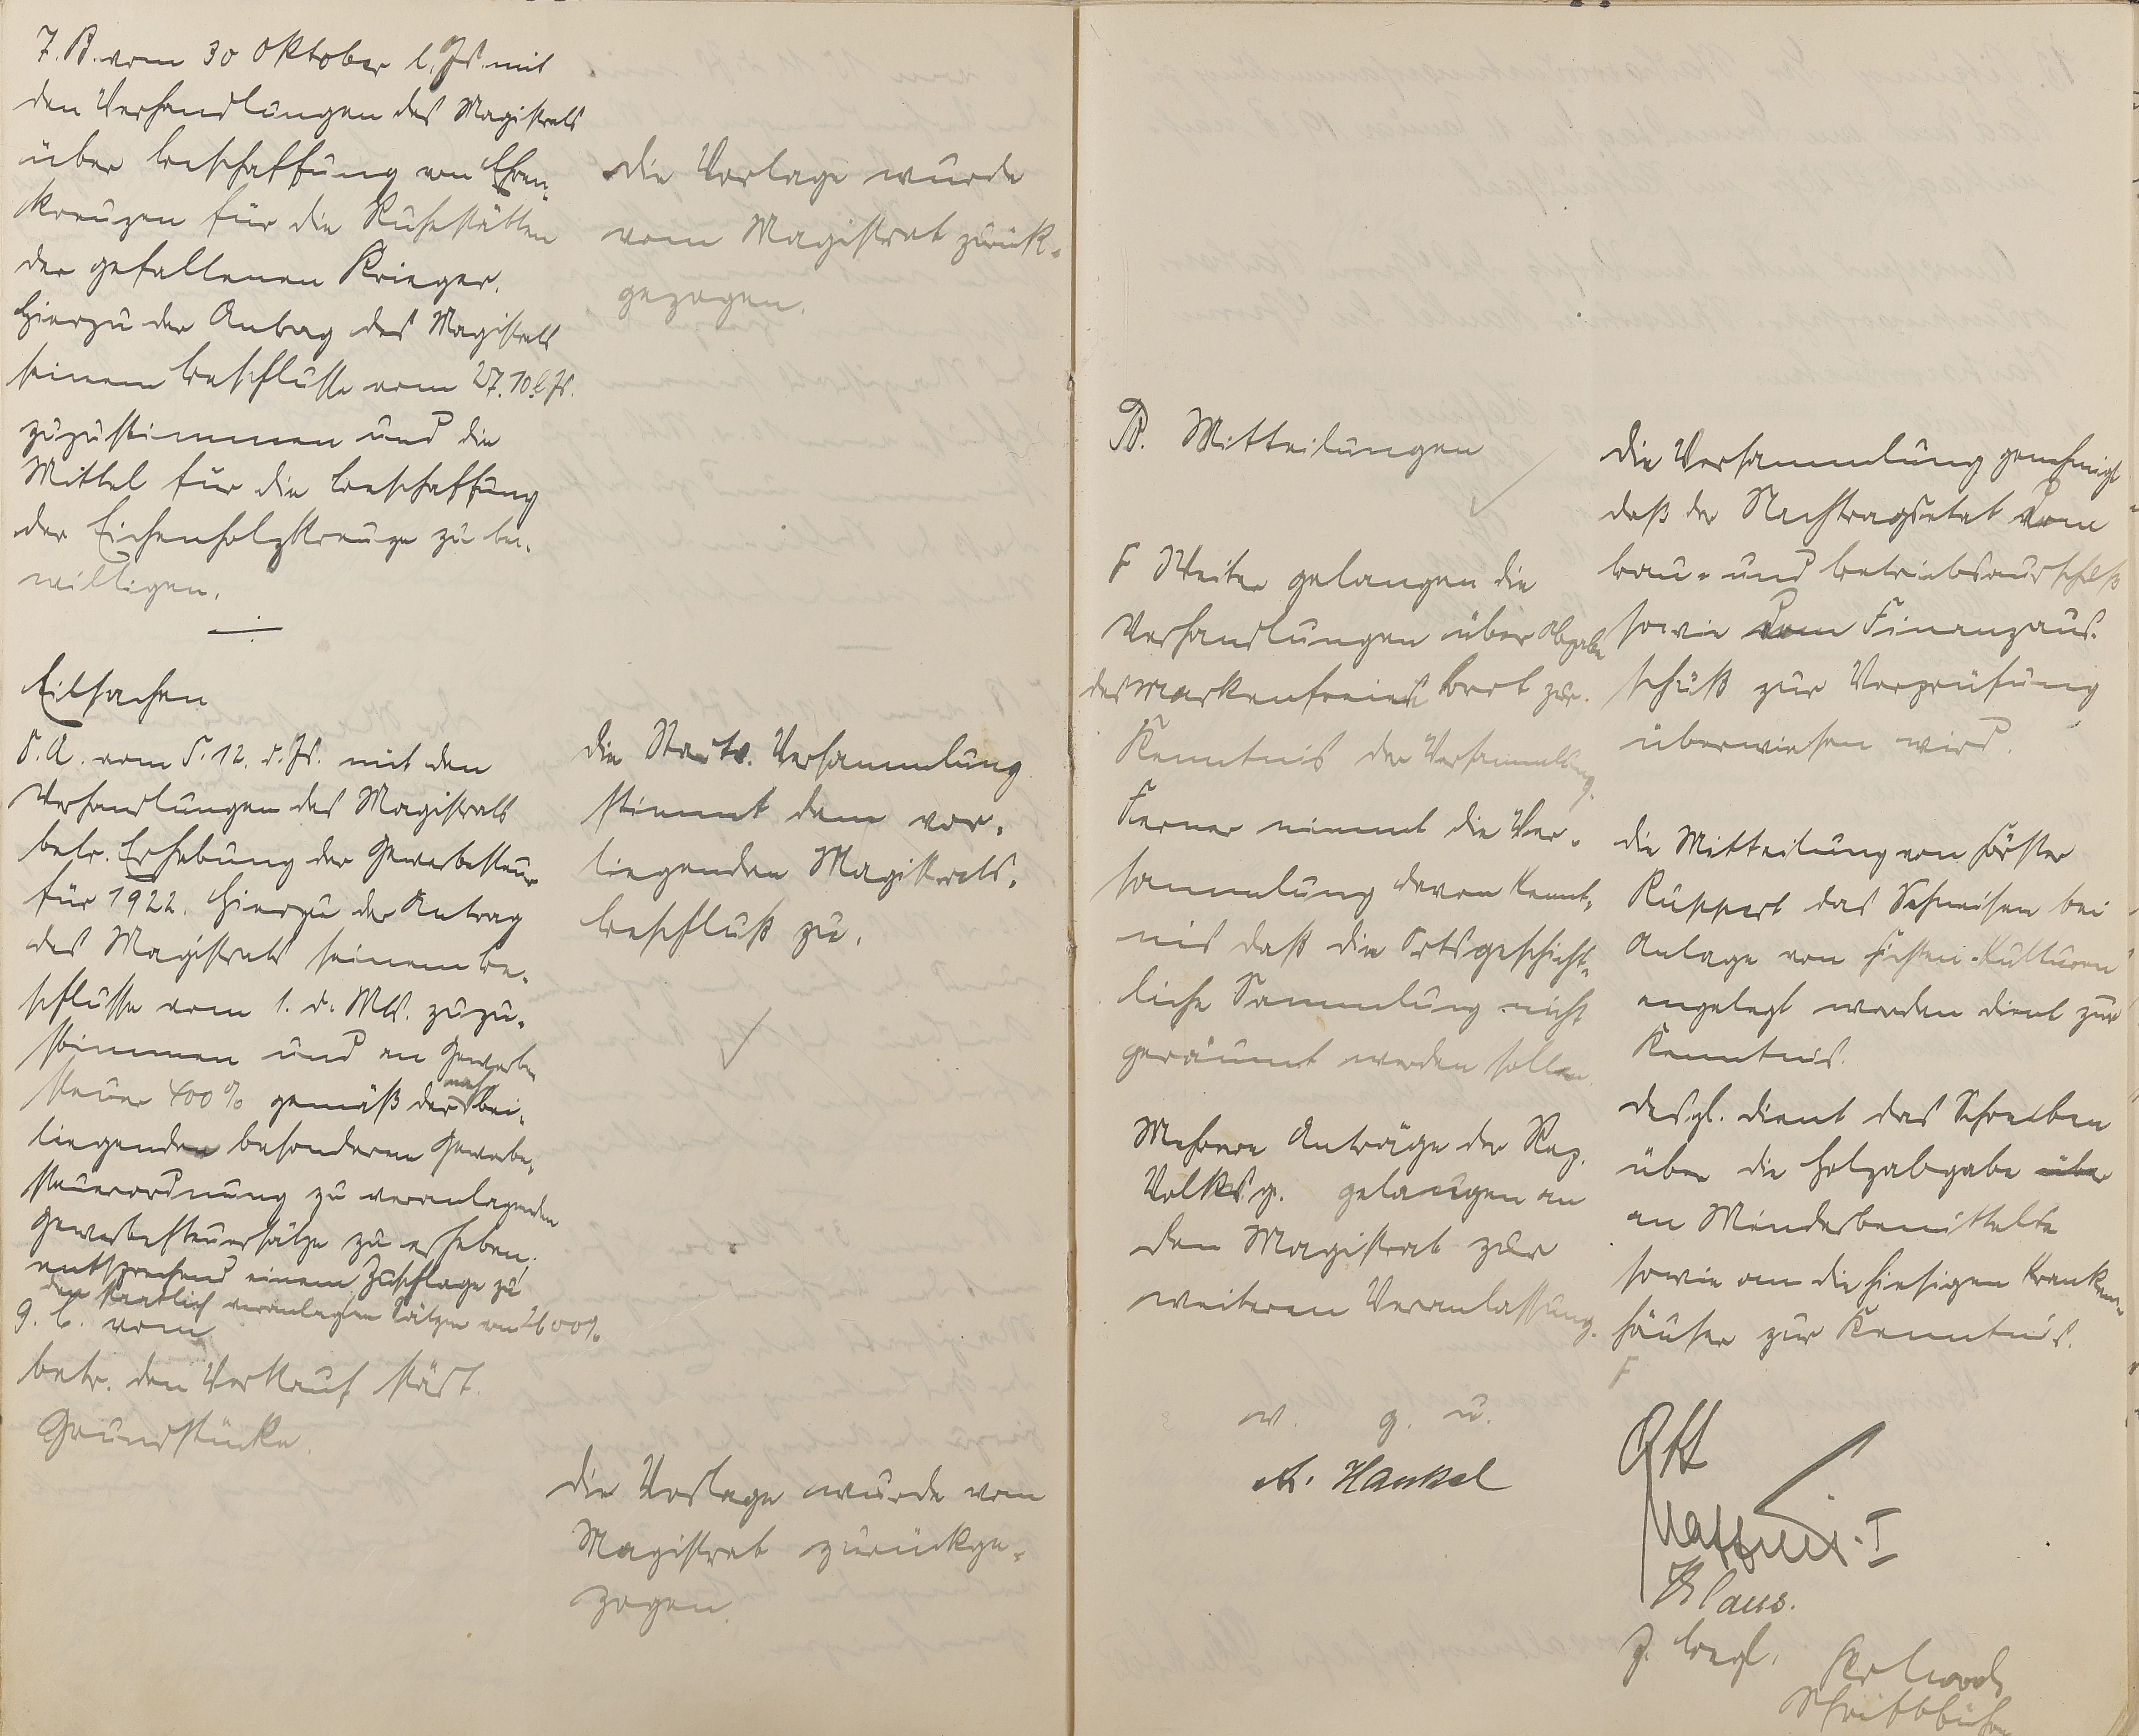 7. B. vom 30 Oktober l. Js. mit
den Verhandlungen des Magistrats
über Beschaffung von Ehren-
kreuzen für die Ruhestätten
der gefallenen Krieger.
Hierzu der Antrag des Magistrats
seinem Beschlusse vom 27.10. l Js.
zuzustimmen und die
Mittel für die Beschaffung
der Eichenholzkreuze zu be-
willigen.
die Vorlage wurde
vom Magistrat zurück-
gezogen.
Eilsachen
8. A. vom 8.12. d. Js. mit den
Verhandlungen des Magistrats
betr. Erhebung der Gewerbesteuer
für 1922. Hierzu der Antrag
des Magistrats seinem Be-
schlusse vom 1. d. Mts. zuzu-
stimmen und an Gewerbe
steuer 400% gemäß der nach bei-
liegenden besonderen Gewerbe-
steuerordnung zu veranlagenden
Gewerbesteuersätze zu erheben,
entsprechend einem Zuschlage zu
den staatlich veranlagten Sätzen von 2600%
die Stadtv. Versammlung
stimmt dem vor-
liegenden Magistrats-
beschluß zu.
9. C. vom
betr. den Verkauf städt.
Grundstücke.
die Vorlage wurde vom
Magistrat zurückge-
zogen.
B. Mitteilungen
F Weiter gelangen die
Verhandlungen über Abgabe
des markenfreies Brot zur
Kenntnis der Versammlung.
Ferner nimmt die Ver-
sammlung davon Kennt-
nis daß die Ortsgeschicht-
liche Sammlung nicht
geräumt werden sollen
Mehrere Anträge der Rep.
Volksp. gelangen an
den Magistrat zur
weiteren Veranlassung.
v. g. u.
A. Hankel
die Versammlung genehmigt
daß der Nachtragsetat vom
Bau- und Betriebsausschuß
sowie vom Finanzaus-
schuß zur Vorprüfung
überwiesen wird.
die Mitteilung von Förster
Ruppert das Schneisen bei
Anlage von Fichten-Kulturen
angelegt werden dient zur
Kenntnis.
desgl. dient das Schreiben
über die Holzabgabe über
an Minderbemittelte
sowie an die hiesigen Kranken-
häuser zur Kenntnis.
F
Ott
Klaus.
z. Begl.
Schriftführer